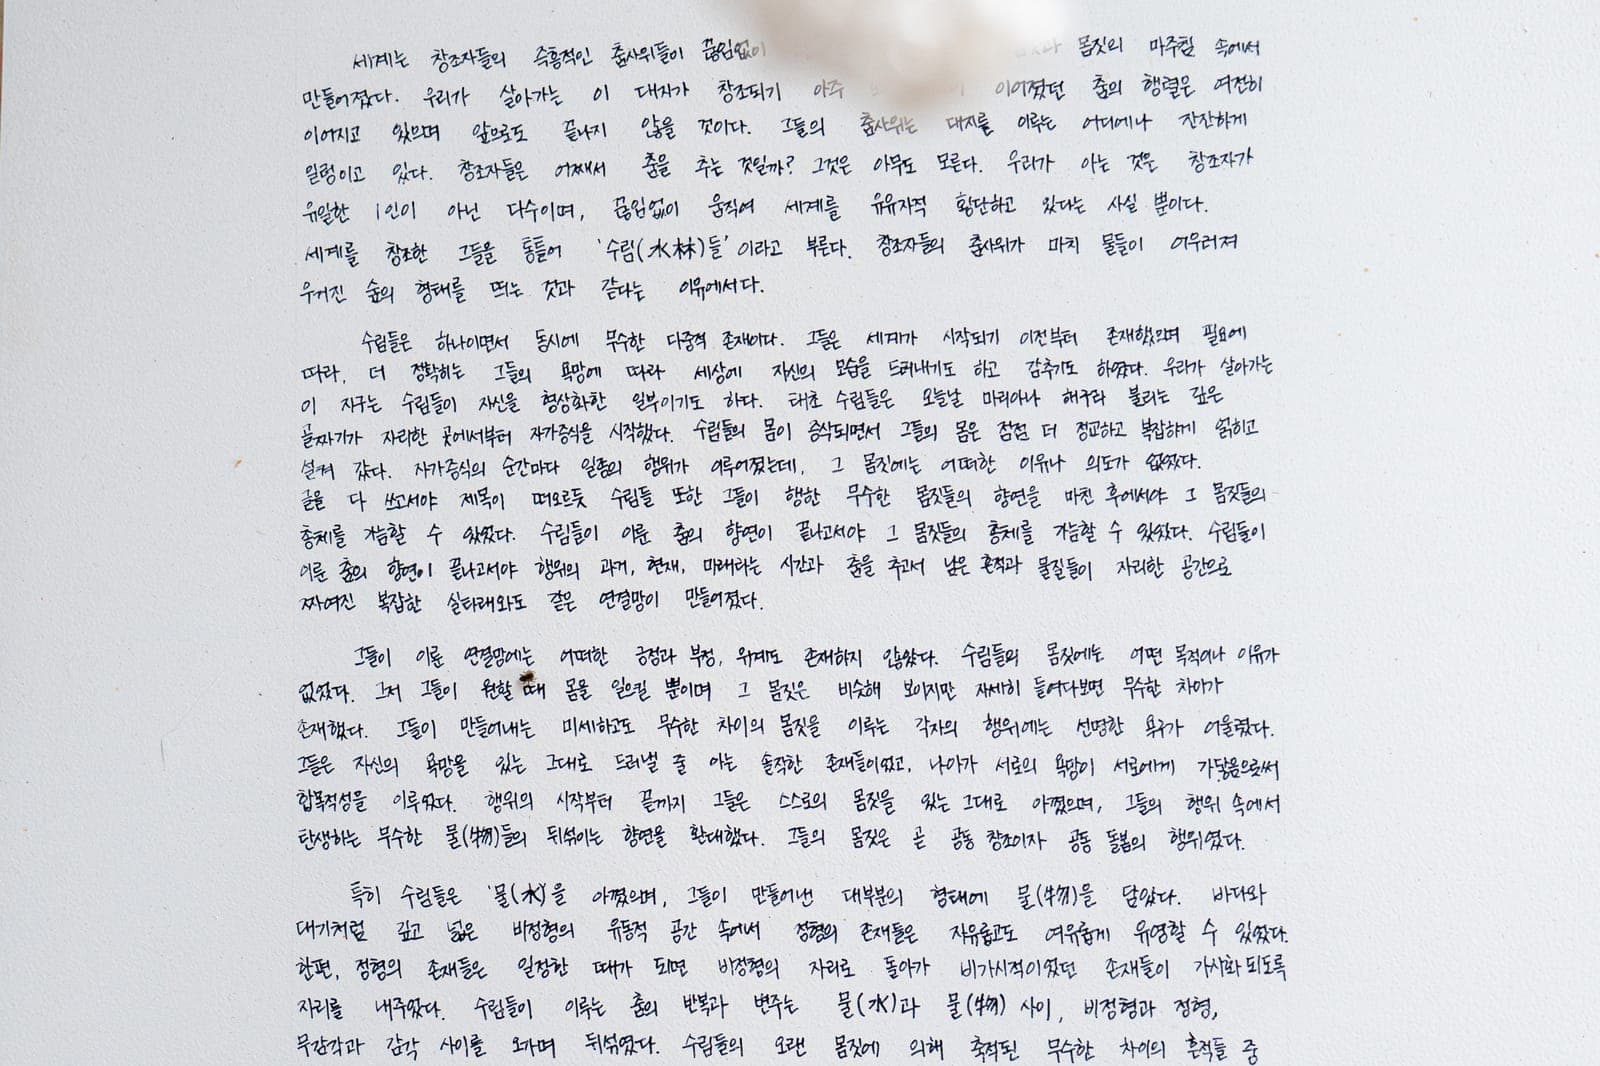 세계는 창조자들의 즉흥적인 춤사위들이 끊임없이 몸짓의 마주침 속에서
만들어졌다. 우리가 살아가는 이 대지가 창조되기 아주 이어졌던 춤의 행렬은 여전히
이어지고 있으며 앞으로도 끝나지 않을 것이다. 그들의 춤사위는 대지를 이루는 어디에나 잔잔하게
일렁이고 있다. 창조자들은 어째서 춤을 추는 것일까? 그것은 아무도 모른다. 우리가 아는 것은 창조자가
유일한 1인이 아닌 다수이며, 끊임없이 움직여 세계를 유유자적 횡단하고 있다는 사실 뿐이다.
세계를 창조한 그들을 통틀어 '수림(水林)들'이라고 부른다. 창조자들의 춤사위가 마치 물들이 어우러져
우거진 숲의 형태를 띄는 것과 같다는 이유에서다.
수림들은 하나이면서 동시에 무수한 다중적 존재이다. 그들은 세계가 시작되기 이전부터 존재했으며 필요에
따라, 더 정확히는 그들의 욕망에 따라 세상에 자신의 모습을 드러내기도 하고 감추기도 하였다. 우리가 살아가는
이 지구는 수림들이 자신을 형상화한 일부이기도 하다. 태초 수림들은 오늘날 마리아나 해구라 불리는 깊은
골짜기가 자리한 곳에서부터 자가증식을 시작했다. 수림들의 몸이 증식되면서 그들의 몸은 점점 더 정교하고 복잡하게 얽히고
설켜 갔다. 자가증식의 순간마다 일종의 행위가 이루어졌는데, 그 몸짓에는 어떠한 이유나 의도가 없었다.
글을 다 쓰고서야 제목이 떠오르듯 수림들 또한 그들이 행한 무수한 몸짓들의 향연을 마친 후에서야 그 몸짓들의
총체를 가늠할 수 있었다. 수림들이 이룬 춤의 향연이 끝나고서야 그 몸짓들의 총체를 가늠할 수 있었다. 수림들이
이룬 춤의 향연이 끝나고서야 행위의 과거, 현재, 미래라는 시간과 춤을 추고서 남은 흔적과 물질들이 자리한 공간으로
짜여진 복잡한 실타래와도 같은 연결망이 만들어졌다.
그들이 이룬 연결망에는 어떠한 긍정과 부정, 위계도 존재하지 않았다. 수림들의 몸짓에는 어떤 목적이나 이유가
없었다. 그저 그들이 원할 때 몸을 일으킬 뿐이며 그 몸짓은 비슷해 보이지만 자세히 들여다보면 무수한 차이가
존재했다. 그들이 만들어내는 미세하고도 무수한 차이의 몸짓을 이루는 각자의 행위에는 선명한 욕구가 어울렸다.
그들은 자신의 욕망을 있는 그대로 드러낼 줄 아는 솔직한 존재들이었고, 나아가 서로의 욕망이 서로에게 가닿음으로써
합목적성을 이루었다. 행위의 시작부터 끝까지 그들은 스스로의 몸짓을 있는 그대로 아꼈으며, 그들의 행위 속에서
탄생하는 무수한 물(物)들의 뒤섞이는 향연을 환대했다. 그들의 몸짓은 곧 공동 창조이자 공동 돌봄의 행위였다.
특히 수림들은 '물(水)'을 아꼈으며, 그들이 만들어낸 대부분의 형태에 물(物)을 담았다. 바다와
대기처럼 깊고 넓은 비정형의 유동적 공간 속에서 정형의 존재들은 자유롭고도 여유롭게 유영할 수 있었다.
한편, 정형의 존재들은 일정한 때가 되면 비정형의 자리로 돌아가 비가시적이었던 존재들이 가시화되도록
자리를 내주었다. 수림들이 이루는 춤의 반복과 변주는 물(水)과 물(物) 사이, 비정형과 정형,
무감각과 감각 사이를 오가며 뒤섞였다. 수림들의 오랜 몸짓에 의해 축적된 무수한 차이의 흔적들 중